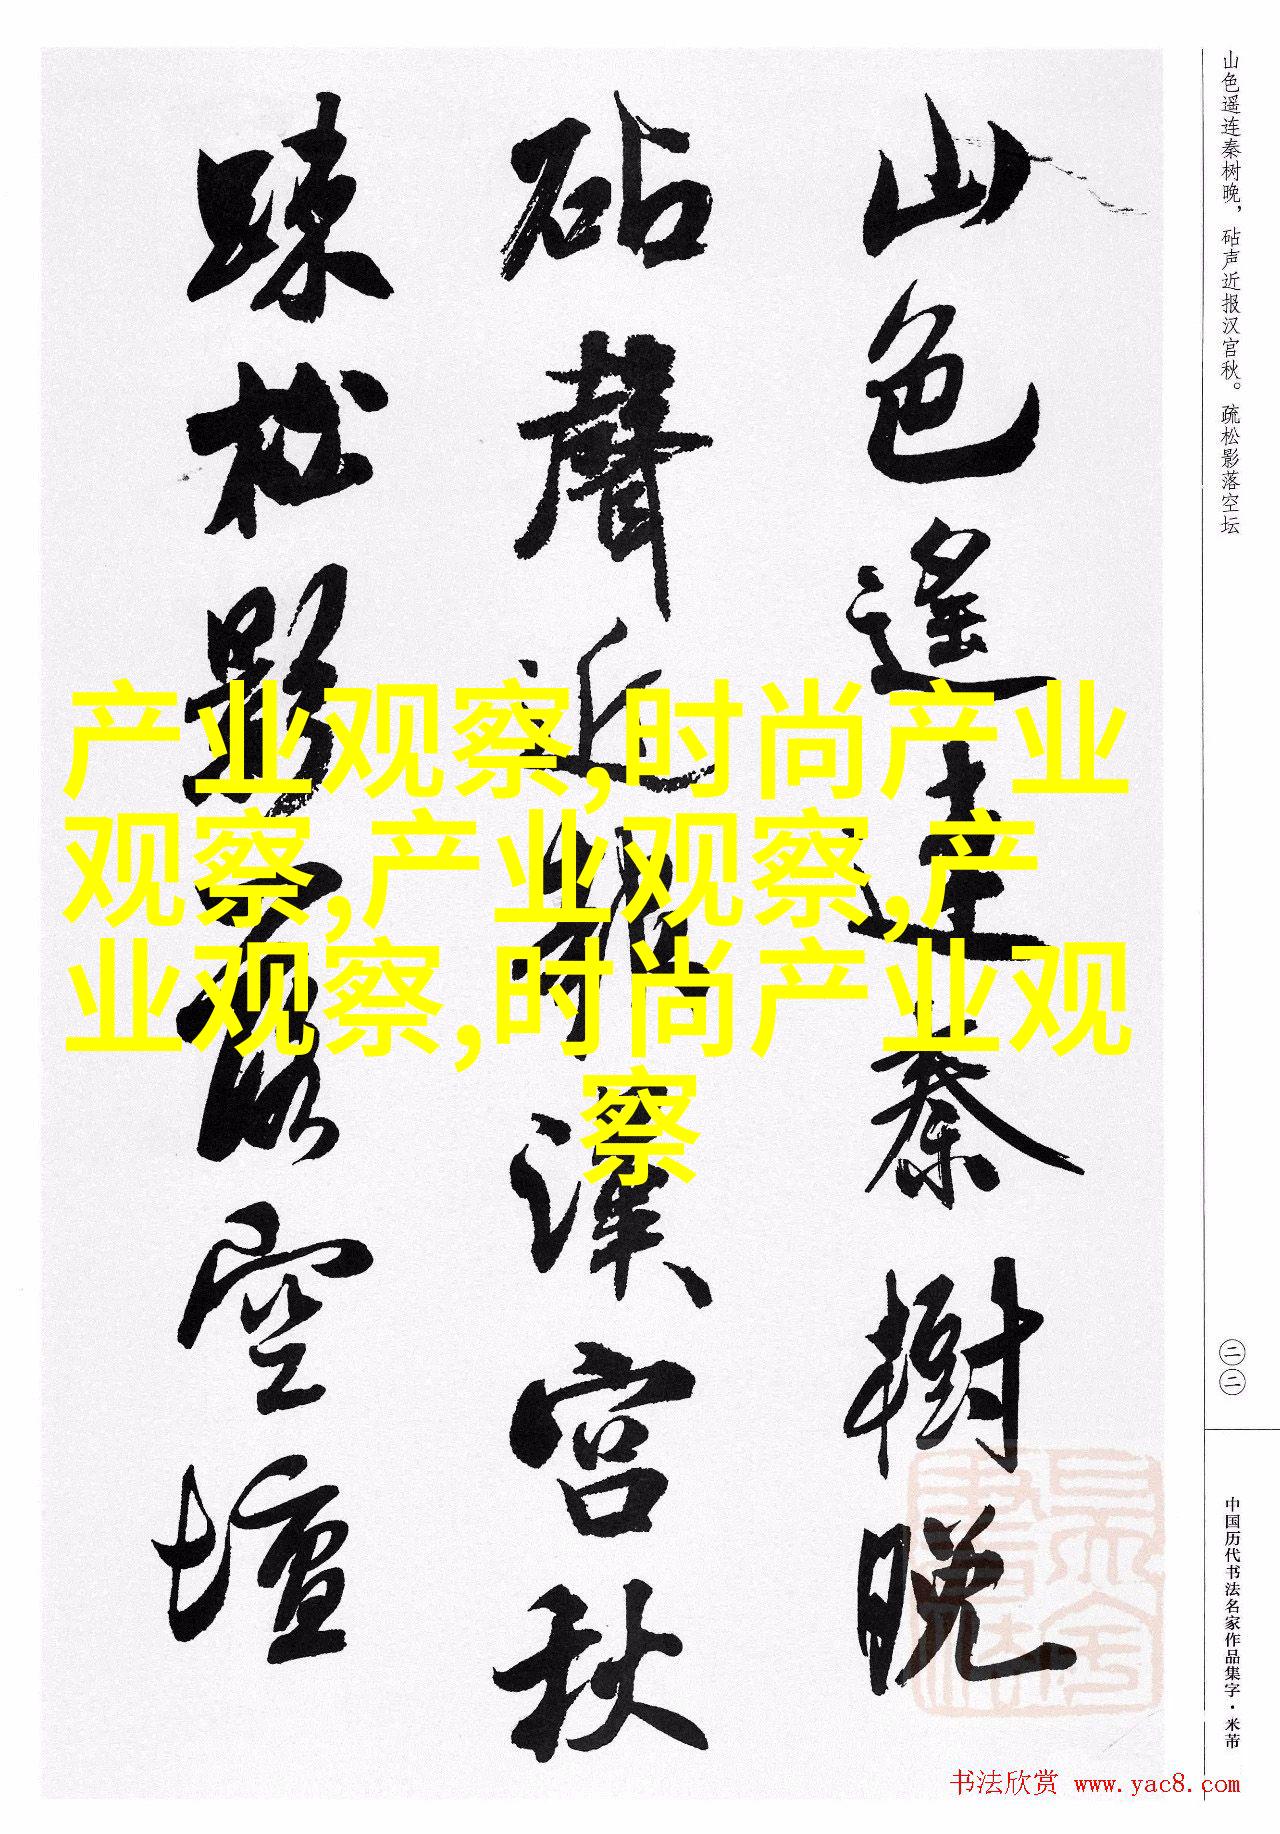 山色遥连秦树晚，砧声近报汉宫秋。疏松影落空坛
山色遙連秦樹晚
砧聲近報漢宮秋
疎松影落空壇
产业观察,时尚产业
观察,产业观察,产
业观察,时尚产业观
察
二二
中国历代书法名家作品集字·米芾
书法欣赏 www.yac8.com